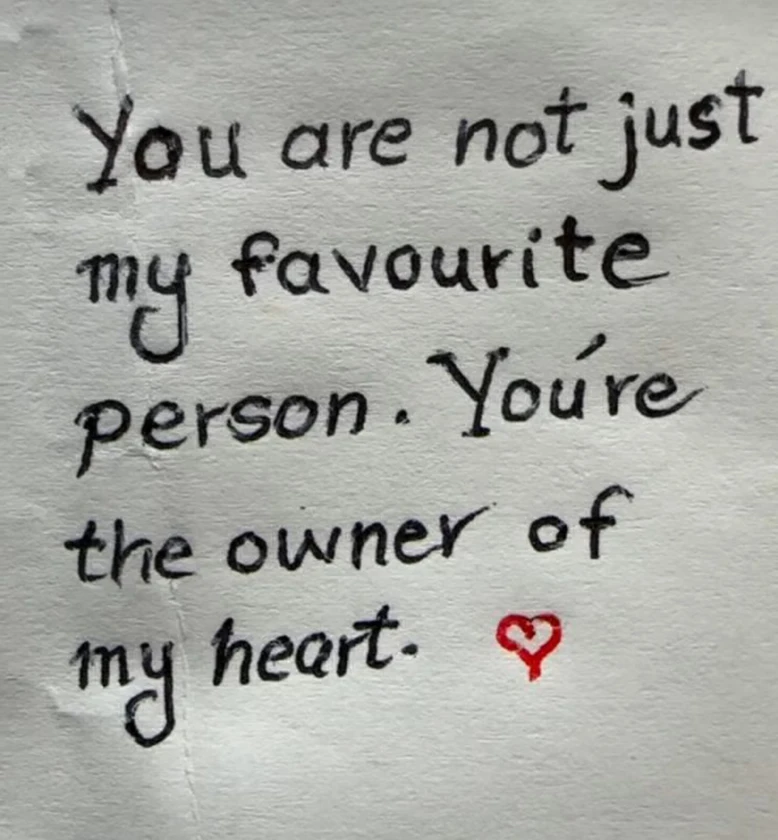 You are not just
my favourite
person. You're
the owner of
my heart.